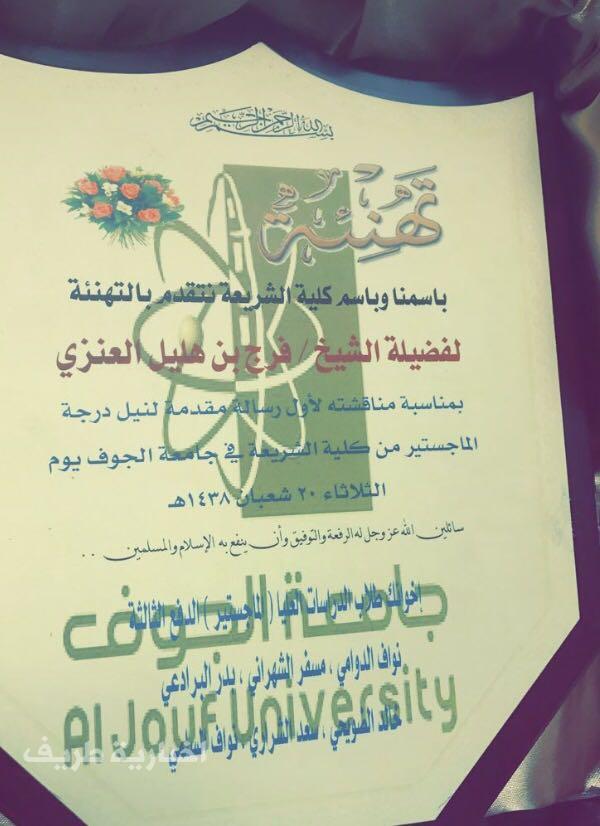 بسم الله الرحمن الرحيم
تهنئة
باسمنا وباسم كلية الشريعة نتقدم بالتهنئة
لفضيلة الشيخ / فرج بن هليل العنزي
بمناسبة مناقشته لأول رسالة مقدمة لنيل درجة
الماجستير من كلية الشريعة في جامعة الجوف يوم
الثلاثاء ٢٠ شعبان ١٤٣٨هـ
سائلين الله عز وجل له الرفعة والتوفيق وأن ينفع به الإسلام والمسلمين ..
إخوانك طلاب الدراسات العليا ( الماجستير ) الدفع الثالثة
جامعة الجوف
نواف الدوامي ، مسفر الشهراني ، بدر البرادعي
Al Jouf University
خالد الضويحي ، سعد الشراري ، نواف
اخبارية طريف